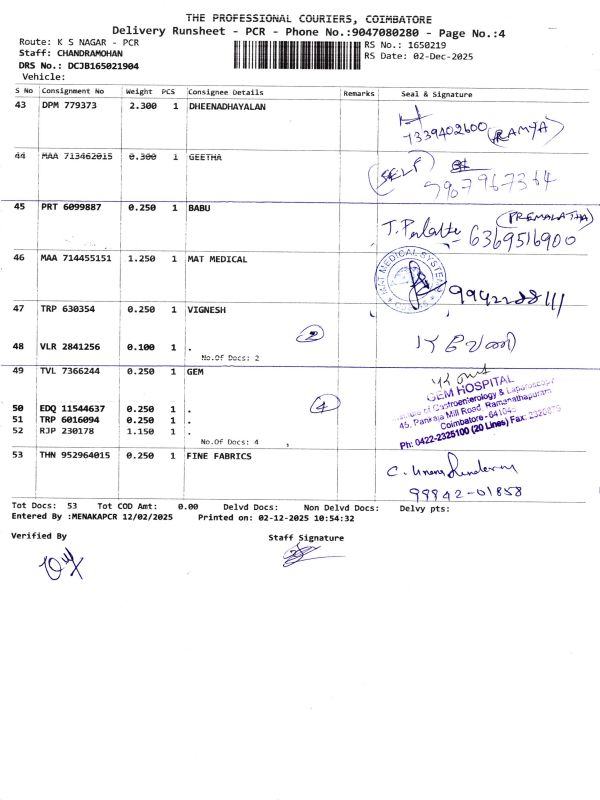 THE PROFESSIONAL COURIERS, COIMBATORE
Delivery Runsheet - PCR - Phone No.:9047080280 - Page No.:4
Route: K S NAGAR - PCR
RS No.: 1650219
Staff: CHANDRAMOHAN
RS Date: 02-Dec-2025
DRS No.: DCJB165021904
Vehicle:
S No Consignment No Weight PCS Consignee Details Remarks Seal & Signature
43 DPM 779373 2.300 1 DHEENADHAYALAN
7339402600 (RAMYA)
44 MAA 713462015 0.300 1 GEETHA
(SELF)
7907967364
45 PRT 6099887 0.250 1 BABU
(PREMALATHA)
6369516900
46 MAA 714455151 1.250 1 MAT MEDICAL
MAT MEDICAL SYSTEMS
47 TRP 630354 0.250 1 VIGNESH
2
48 VLR 2841256 0.100 1 .
No.Of Docs: 2
49 TVL 7366244 0.250 1 GEM
GEM HOSPITAL
Institute of Gastroenterology & Laparoscopy
45, Pankaja Mill Road, Ramanathapuram
Coimbatore - 641045
Ph: 0422-2325100 (20 Lines) Fax: 2320879
4
50 EDQ 11544637 0.250 1 .
51 TRP 6016094 0.250 1 .
52 RJP 230178 1.150 1 .
No.Of Docs: 4
53 THN 952964015 0.250 1 FINE FABRICS
99942-01858
Tot Docs: 53 Tot COD Amt: 0.00 Delvd Docs: Non Delvd Docs: Delvy pts:
Entered By :MENAKAPCR 12/02/2025 Printed on: 02-12-2025 10:54:32
Verified By Staff Signature